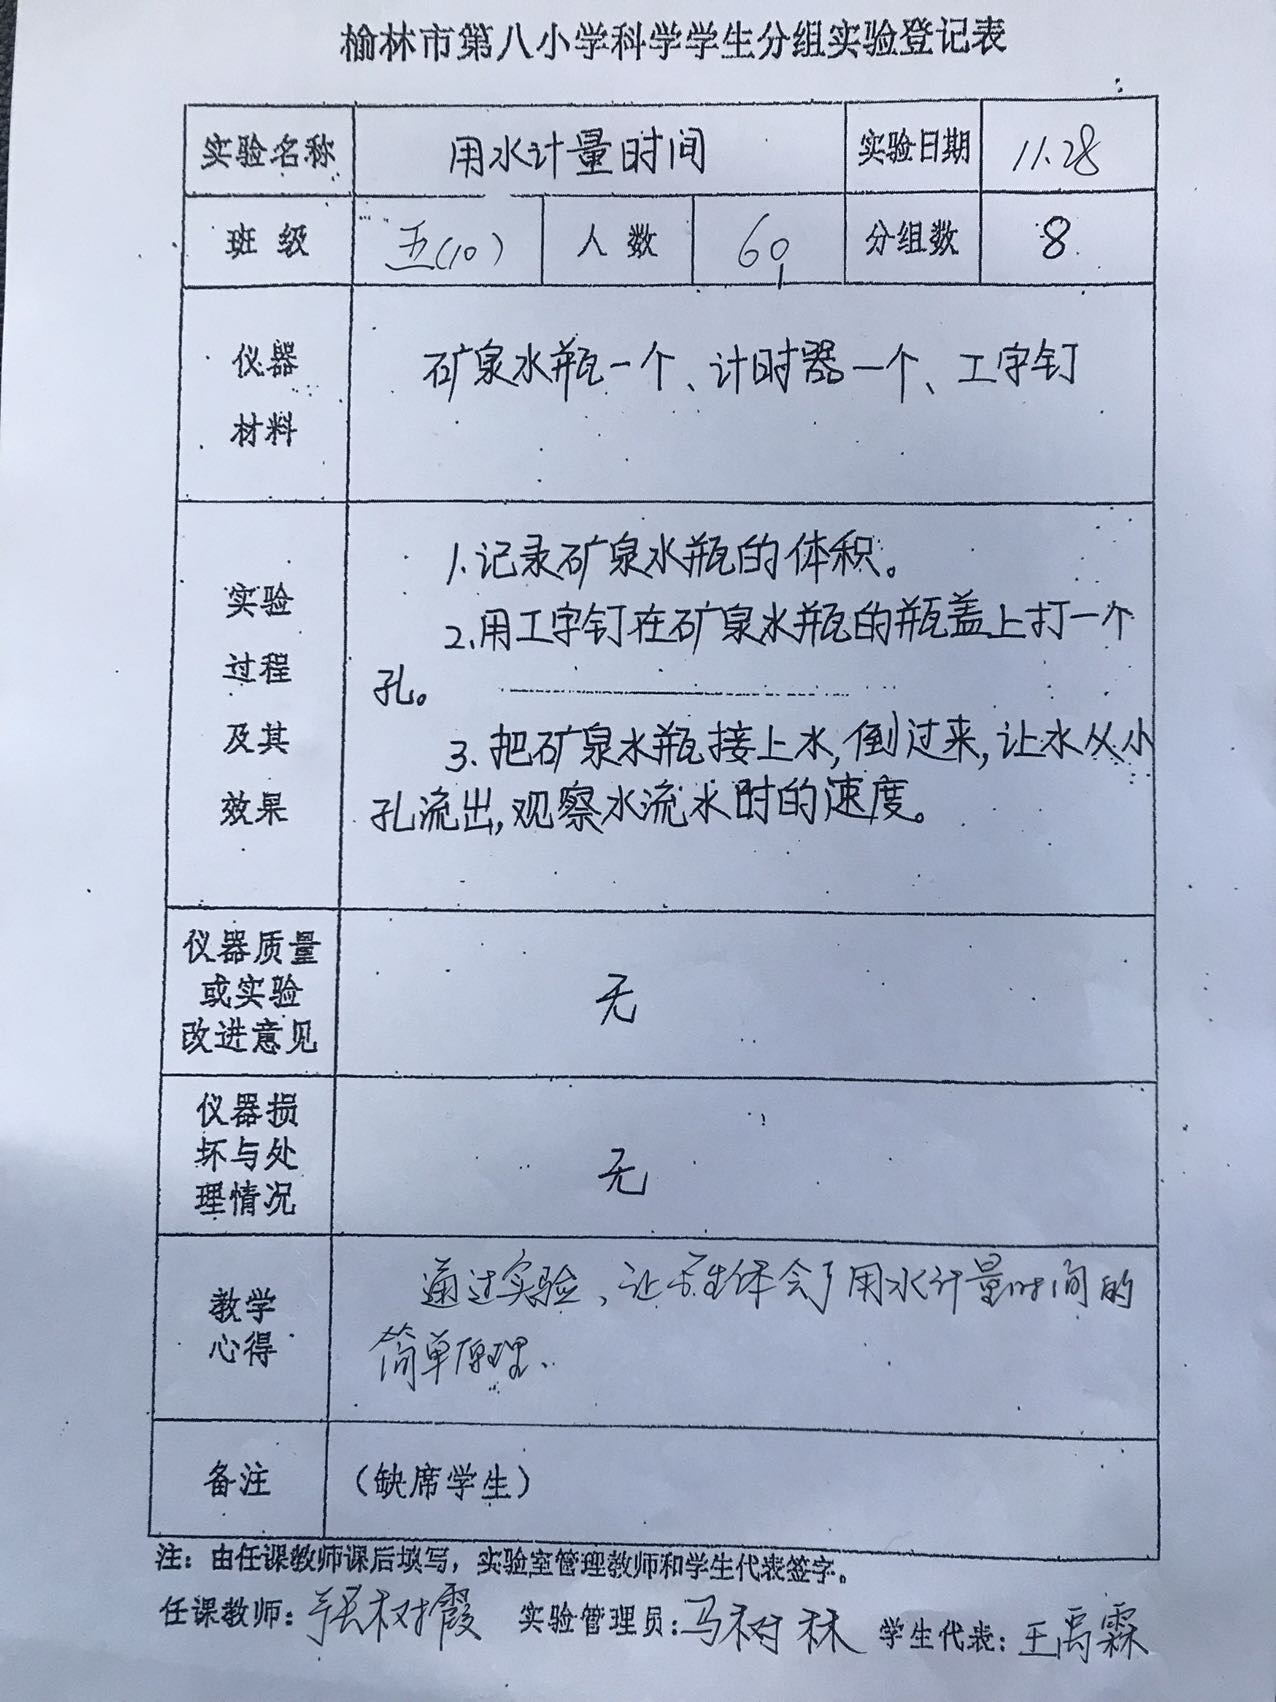 榆林市第八小学科学学生分组实验登记表
实验名称 用水计量时间 实验日期 11.28
班 级 五(10) 人 数 60 分组数 8
仪器
材料
矿泉水瓶一个、计时器一个、工字钉
实验
过程
及其
效果
1.记录矿泉水瓶的体积。
2.用工字钉在矿泉水瓶的瓶盖上打一个
孔。
3.把矿泉水瓶接上水,倒过来,让水从小
孔流出,观察水流水时的速度。
仪器质量
或实验
改进意见
无
仪器损
坏与处
理情况
无
教学
心得
通过实验、让学生体会了用水计量时间的
简单原理.
备注 (缺席学生)
注：由任课教师课后填写，实验室管理教师和学生代表签字。
任课教师：张树霞 实验管理员：马树林 学生代表：王禹霖